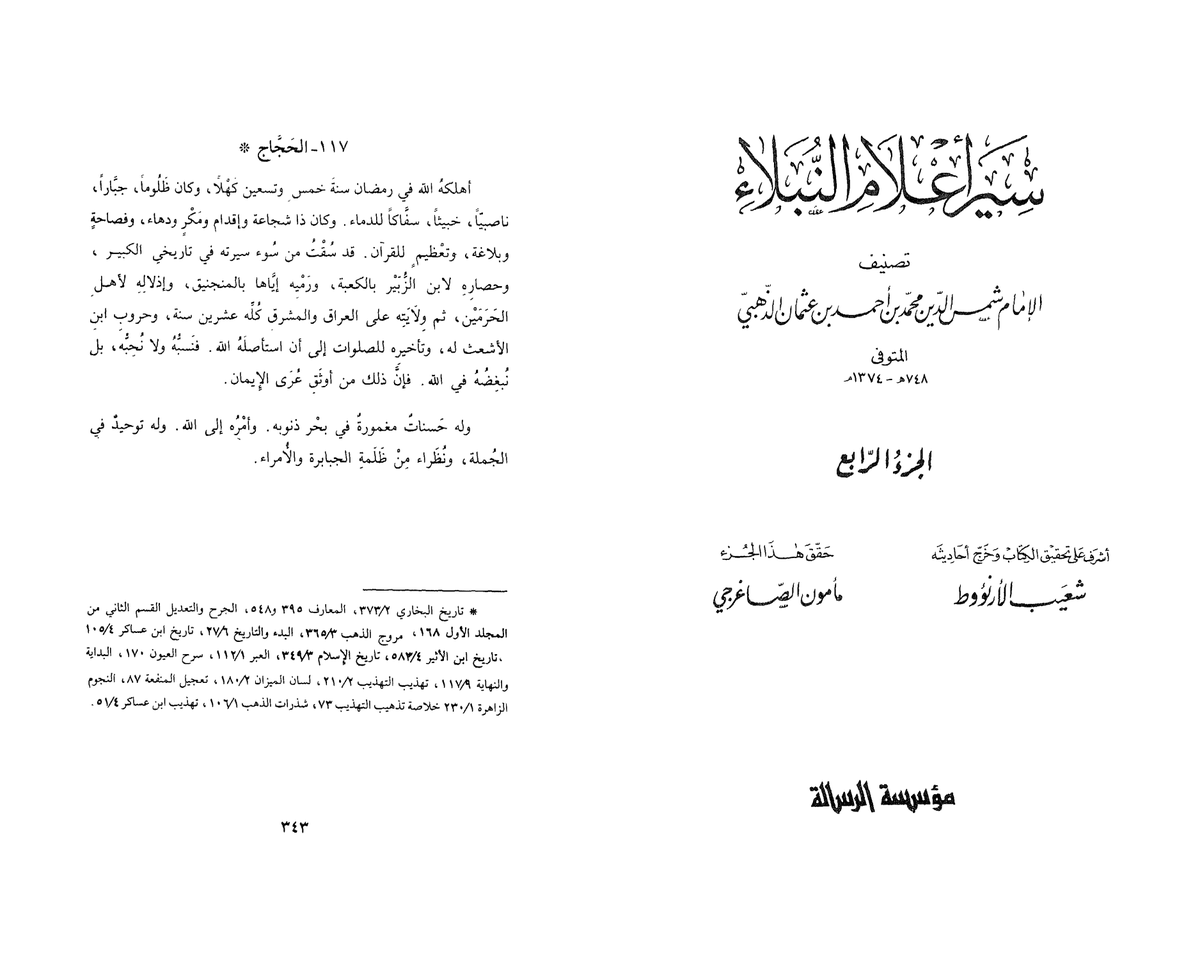 سير أعلام النبلاء
تصنيف
الإمام شمس الدّين محمّد بن أحمد بن عثمان الذّهبيّ
المتوفى
٧٤٨هـ - ١٣٧٤م
الجزء الرّابع
أشرف على تحقيق الكتاب وخرّج أحاديثه
شعيب الأرنؤوط
حقّق هذا الجزء
مأمون الصّاغرجي
مؤسسة الرسالة
١١٧ـ الحَجَّاج *
أهلكهُ الله في رمضان سنةَ خمسٍ وتسعين كَهْلًا، وكان ظَلُوماً، جبَّاراً،
ناصبيّاً، خبيثاً، سفَّاكاً للدماء. وكان ذا شجاعة وإقدام ومَكْرٍ ودهاء، وفصاحةٍ
وبلاغة، وتعْظيمٍ للقرآن. قد سُقْتُ من سُوء سيرته في تاريخي الكبير ،
وحصارِهِ لابن الزُّبَيْر بالكعبة، ورَمْيِه إيَّاها بالمنجنيق، وإذلالِهِ لأهلِ
الحَرَمَيْن، ثم وِلَايَتِه على العراق والمشرق كُلِّه عشرين سنة، وحروبِ ابنِ
الأشعث له، وتأخيرِه للصلوات إلى أن استأصلَهُ الله. فنَسبُّهُ ولا نُحِبُّه، بل
نُبغِضُهُ في الله. فإنَّ ذلك من أوثَقِ عُرَى الإيمان.
وله حَسناتٌ مغمورةٌ في بحْر ذنوبه. وأمْرُه إلى الله. وله توحيدٌ في
الجُملة، ونُظَراء مِنْ ظَلَمةِ الجبابرة والأُمراء.
* تاريخ البخاري ٣٧٣/٢، المعارف ٣٩٥ و٥٤٨، الجرح والتعديل القسم الثاني من
المجلد الأول ١٦٨، مروج الذهب ٣٦٥/٣، البدء والتاريخ ٢٧/٦، تاريخ ابن عساكر ١٠٥/٤
،تاريخ ابن الأثير ٥٨٣/٤، تاريخ الإسلام ٣٤٩/٣، العبر ١١٢/١، سرح العيون ١٧٠، البداية
والنهاية ١١٧/٩، تهذيب التهذيب ٢١٠/٢، لسان الميزان ١٨٠/٢، تعجيل المنفعة ٨٧، النجوم
الزاهرة ٢٣٠/١ خلاصة تذهيب التهذيب ٧٣، شذرات الذهب ١٠٦/١، تهذيب ابن عساكر ٥١/٤.
٣٤٣